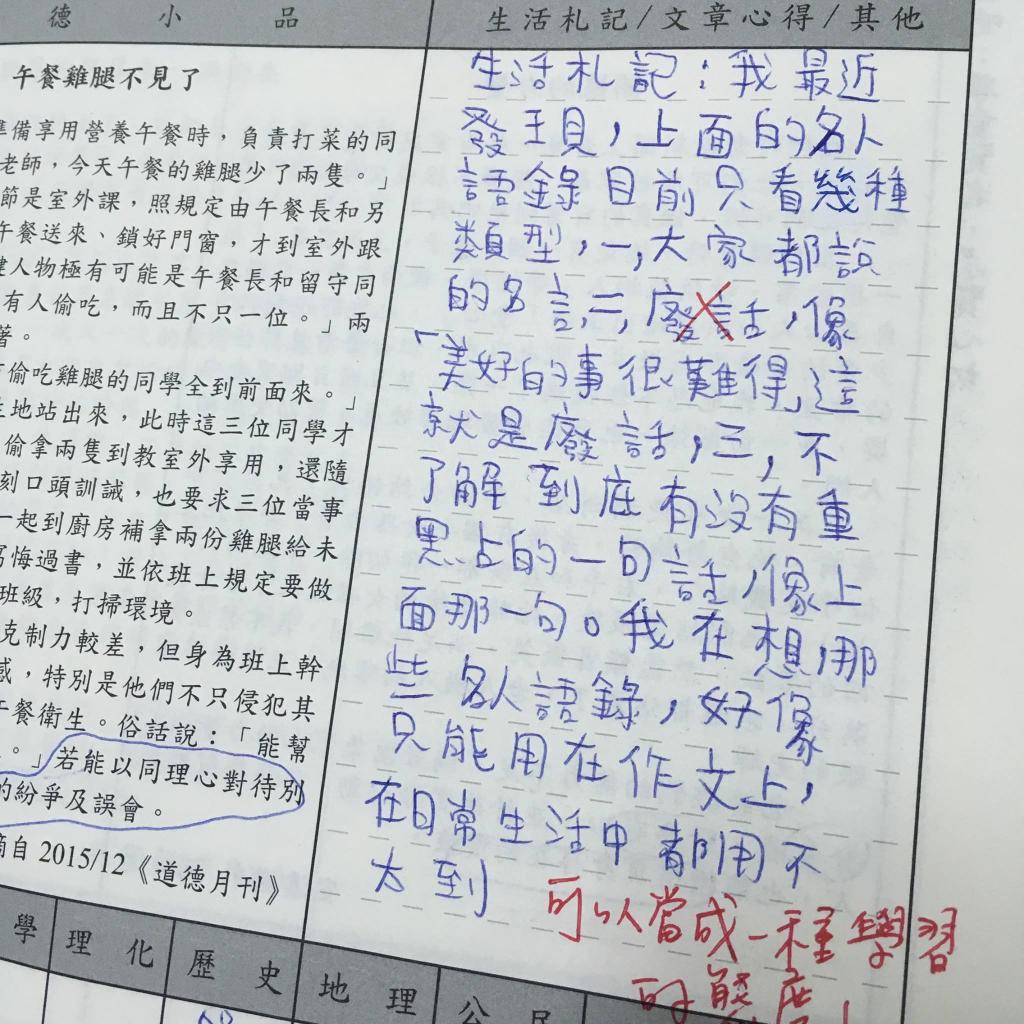 德小品
生活札記/文章心得/其他
午餐雞腿不見了
準備享用營養午餐時，負責打菜的同
老師，今天午餐的雞腿少了兩隻。」
節是室外課，照規定由午餐長和另
午餐送來、鎖好門窗，才到室外跟
鍵人物極有可能是午餐長和留守同
有人偷吃，而且不只一位。」兩
著。
偷吃雞腿的同學全到前面來。」
生地站出來，此時這三位同學才
偷拿兩隻到教室外享用，還隨
刻口頭訓誡，也要求三位當事
一起到廚房補拿兩份雞腿給未
寫悔過書，並依班上規定要做
班級，打掃環境。
克制力較差，但身為班上幹
感，特別是他們不只侵犯其
午餐衛生。俗話說：「能幫
。」若能以同理心對待別
的紛爭及誤會。
摘自 2015/12《道德月刊》
生活札記：我最近
發現，上面的名人
語錄目前只看幾種
類型，一，大家都說
的名言，二，廢話，像
「美好的事很難得」這
就是廢話，三，不
了解到底有沒有重
點的一句話，像上
面那一句。我在想，那
些名人語錄，好像
只能用在作文上，
在日常生活中都用不
太到
可以當成一種學習
的態度！
學
理化
歷史
地理
公民